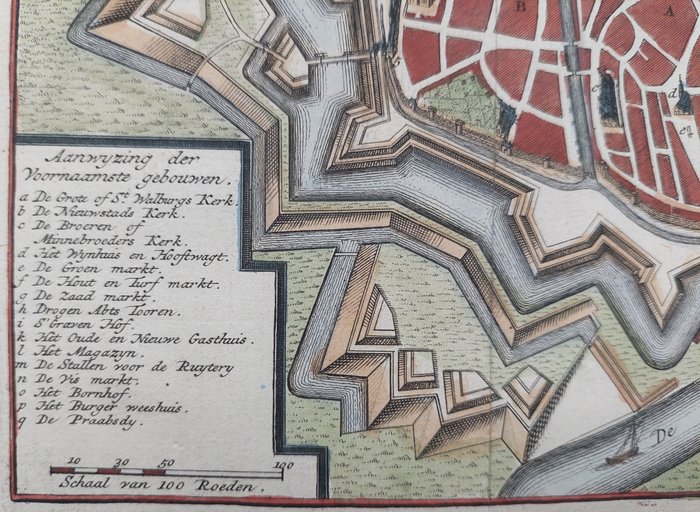 Aanwyzing der
Voornaamste gebouwen.
a De Grote of St. Walburgs Kerk.
b De Nieuwstads Kerk.
c De Broeren of
Minnebroeders Kerk.
d Hét Wynhuis en Hooftwagt.
e De Groen markt.
f De Hout en Turf markt.
g De Zaad markt.
h Drogen Abts Tooren.
i S'Graven Hof.
k Hét Oude en Nieuwe Gasthuis.
l Hét Magazyn.
m De Stallen voor de Ruytery
n De Vis markt.
o Hét Bornhof.
p Hét Burger weeshuis.
q De Praabsdy.
10 30 50 100
Schaal van 100 Roeden.
B
A
h
c
d
e
De